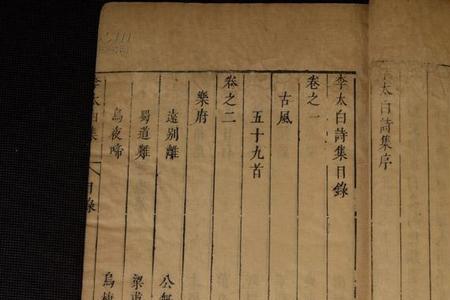 李太白詩集序
李太白詩集目錄
卷之一
古風
五十九首
卷之二
樂府
遠別離
公無
蜀道難
梁甫
烏夜啼
烏棲
李太白集
目錄